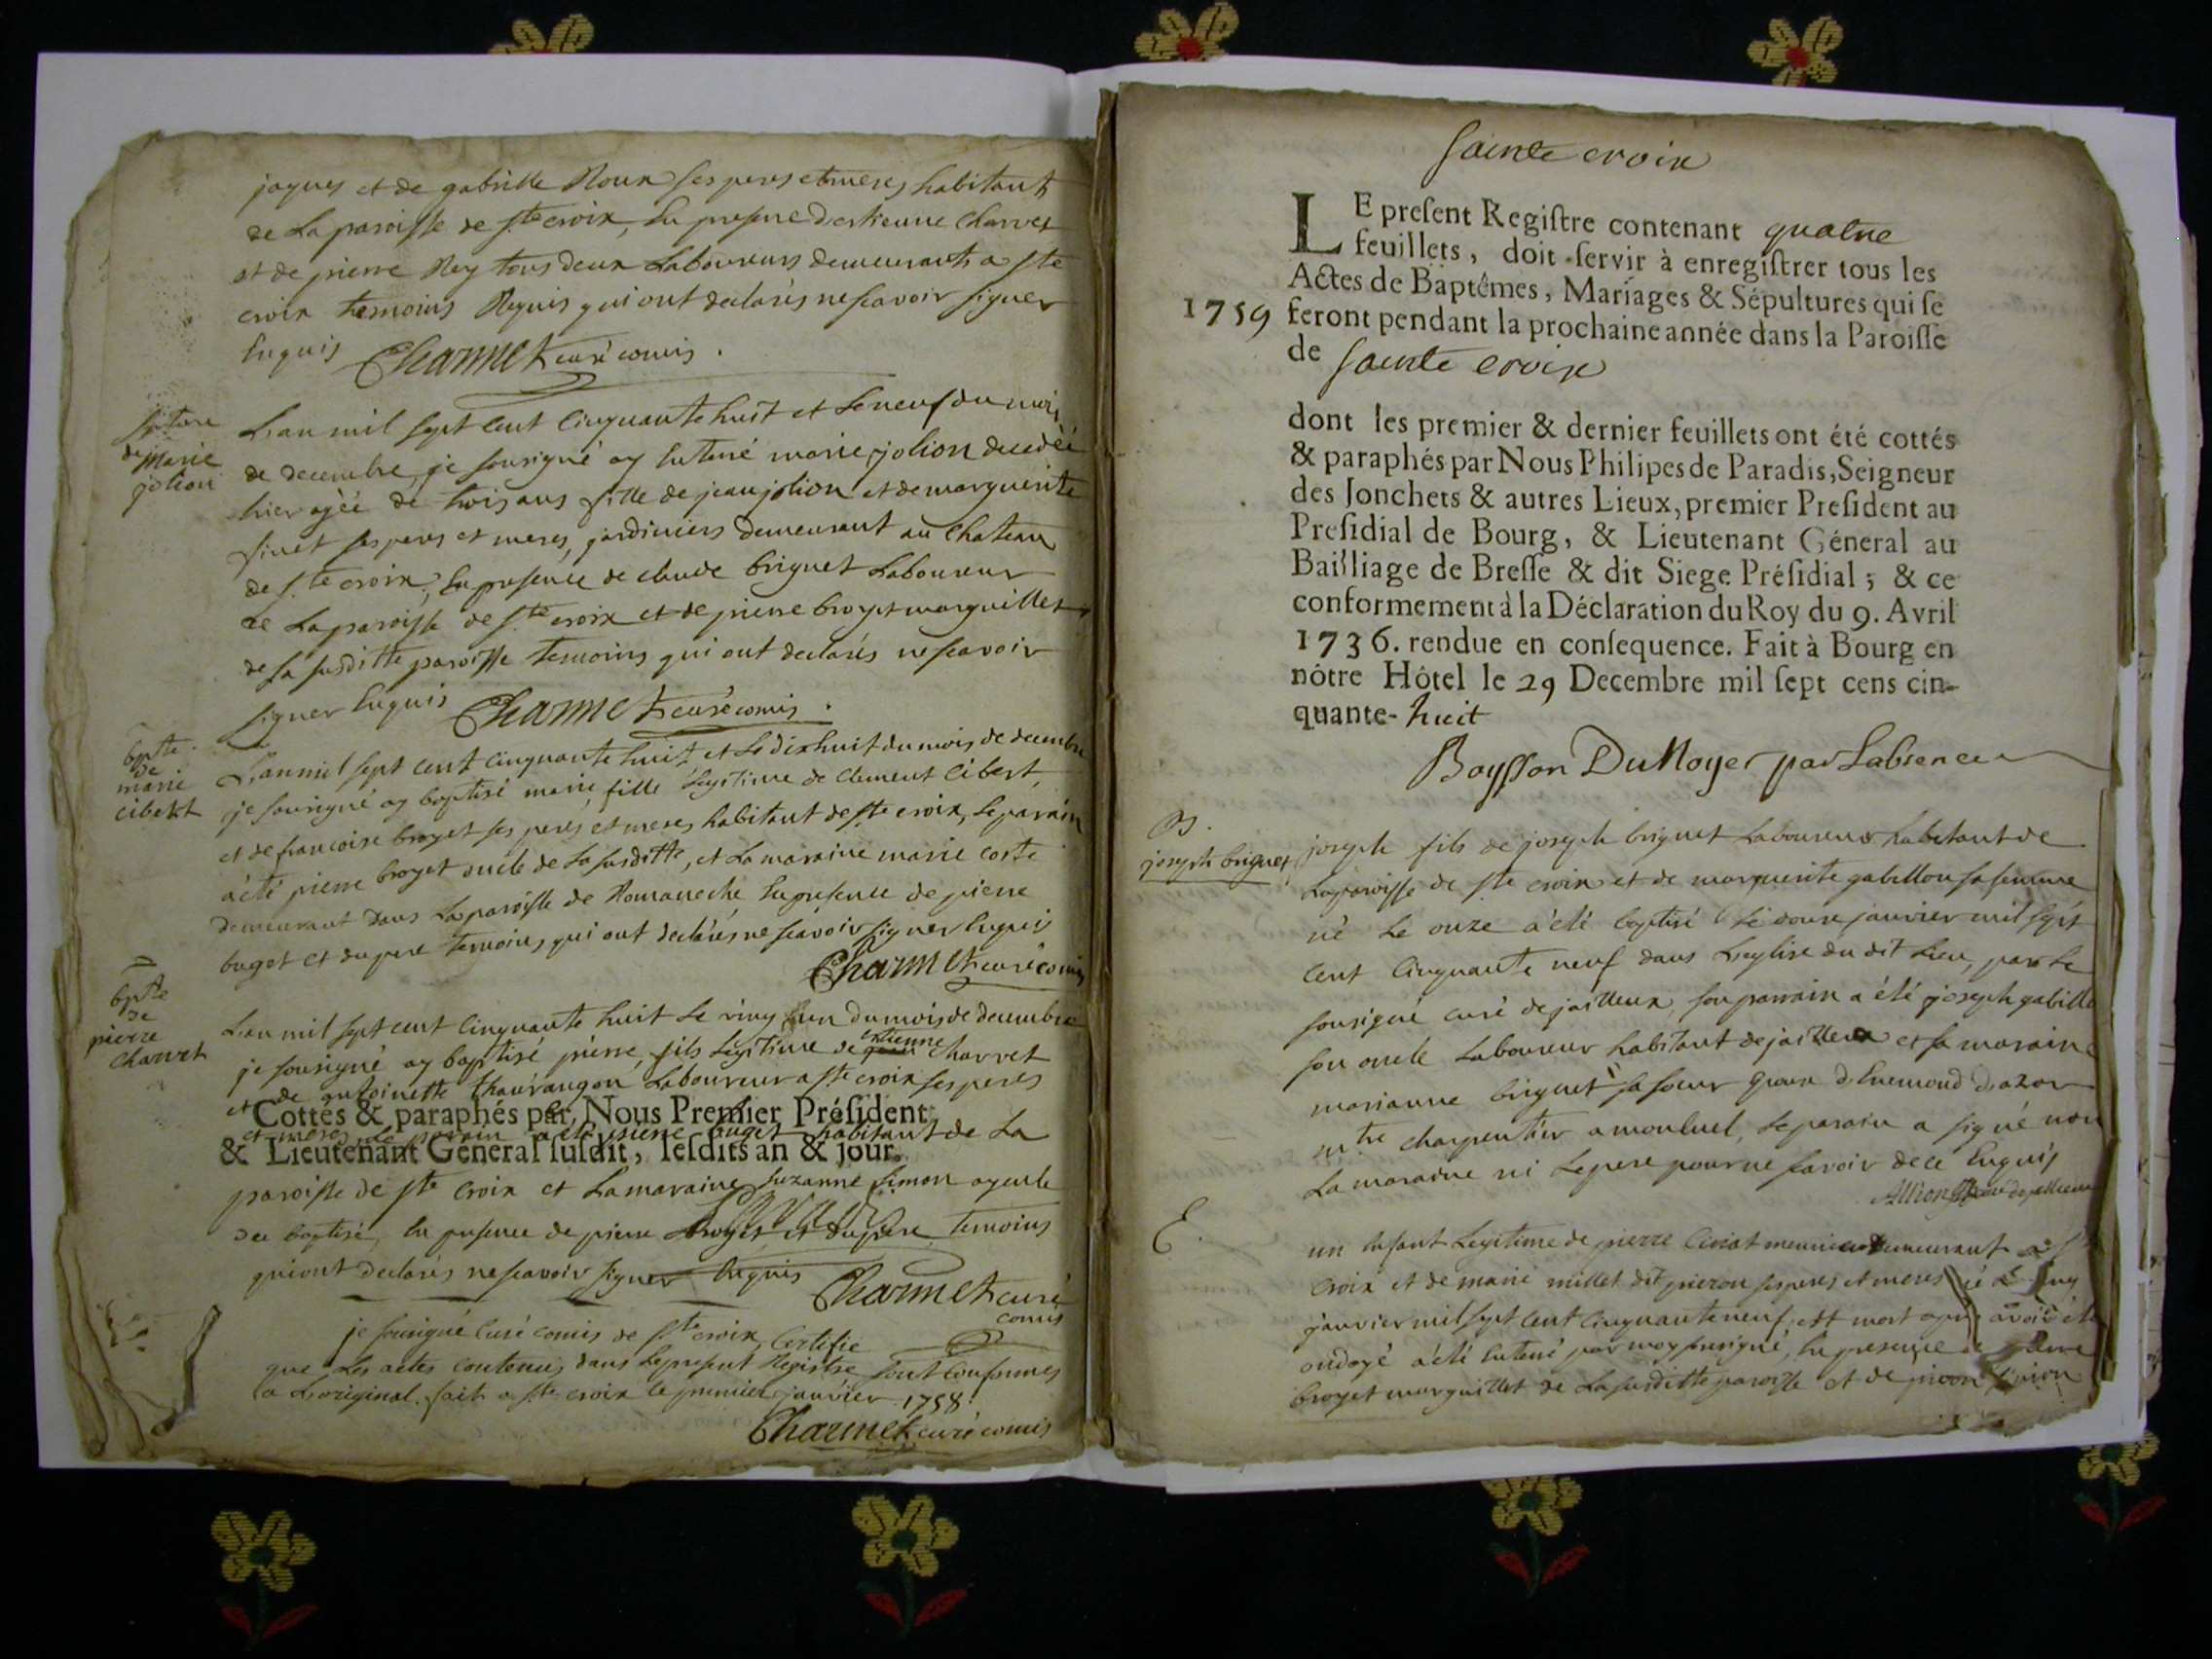 jaques et de gabrille Roux ses peres et meres habitant
de La paroisse de ste croix, En presence destienne Charvet
et de pierre Rey tous deux Laboureurs demeurants a ste
croix temoins Requis qui ont declarés ne scavoir signer
Enquis Charmet curé comis.
sepulture
de Marie
jolion
L'an mil sept cent Cinquante huit et Le neuf du mois
de decembre, je sousigné ay Enterré marie jolion decedéé
hier agéé de trois ans fille de jean jolion et de marguerite
sivet ses peres et meres, jardiniers demeurant au Chateau
de Ste croix, En presence de claude briguet Laboureur
de La paroisse de Ste croix et de pierre broyet marguillier
de sa susditte paroisse temoins qui ont declarés ne scavoir
signer Enquis Charmet curé comis.
bpte
de
marie
cibert
L'an mil sept cent cinquante huit et Le dix huit du mois de decembre
je sousigné ay baptisé marie, fille Legitime de clement Cibert
et de francoise broyet ses peres et meres habitant de ste croix, Le parain
a été pierre broyet oncle de La susditte, et La maraine marie coste
demeurant dans La paroisse de Romaneche En presence de pierre
buget et du pere temoins, qui ont declarés ne scavoir signer Enquis
Charmet curé comis
bpte
de
pierre
charvet
L'an mil sept cent Cinquante huit Le vingt un du mois de decembre
je sousigné ay baptisé pierre, fils Legitime de estienne charvet
et de antoinette Laboureur a ste croix ses peres
Cottés & paraphés par, Nous Premier Président
et meres Le parain a été pierre buget habitant de La
& Lieutenant Géneral susdit, lesdits an & jour.
paroisse de ste Croix et La maraine suzanne simon ayeule
du baptisé, En presence de pierre broyet et du pere temoins
qui ont declarés ne scavoir signer Enquis Charmet curé
comis
je sousigné Curé comis de Ste croix Certifie
que Les actes contenus dans Le present Registre sont conformes
a L'original. fait a ste croix le premier janvier 1758.
Charmet curé comis
Sainte croix
LE present Registre contenant quatre
feuillets, doit servir à enregistrer tous les
Actes de Baptêmes, Mariages & Sépultures qui se
1759 feront pendant la prochaine année dans la Paroisse
de Sainte croix
dont les premier & dernier feuillets ont été cottés
& paraphés par Nous Philipes de Paradis, Seigneur
des Jonchets & autres Lieux, premier President au
Presidial de Bourg, & Lieutenant Géneral au
Bailliage de Bresse & dit Siege Présidial; & ce
conformement à la Déclaration du Roy du 9. Avril
1736. rendue en consequence. Fait à Bourg en
nôtre Hôtel le 29 Decembre mil sept cens cin-
quante-huit
Boysson DuNoyer par Labsence
B.
joseph briguet
joseph fils de joseph briguet Laboureur habitant de
La paroisse de ste croix et de marguerite gabillon sa femme
né Le onze a été baptisé Le douze janvier mil sept
Cent Cinquante neuf dans L'eglise du dit Lieu, par Le
sousigné curé de jailleux, son parrain a été joseph gabillon
son oncle Laboureur habitant de jailleux et sa maraine
marianne briguet sa soeur
mtre charpentier a monluel, Le parain a signé non
La maraine ni Le pere pour ne savoir de ce Enquis
Allion curé de jailleux
E.
un Enfant Legitime de pierre Civiat meunier demeurant a Ste
Croix et de marie millet dit pieron ses peres et meres
janvier mil sept Cent Cinquante neuf, est mort apres avoir été
ondoyé a été Enterré par moy sousigné, En presence de pierre
broyet marguillet de La susditte paroisse et de